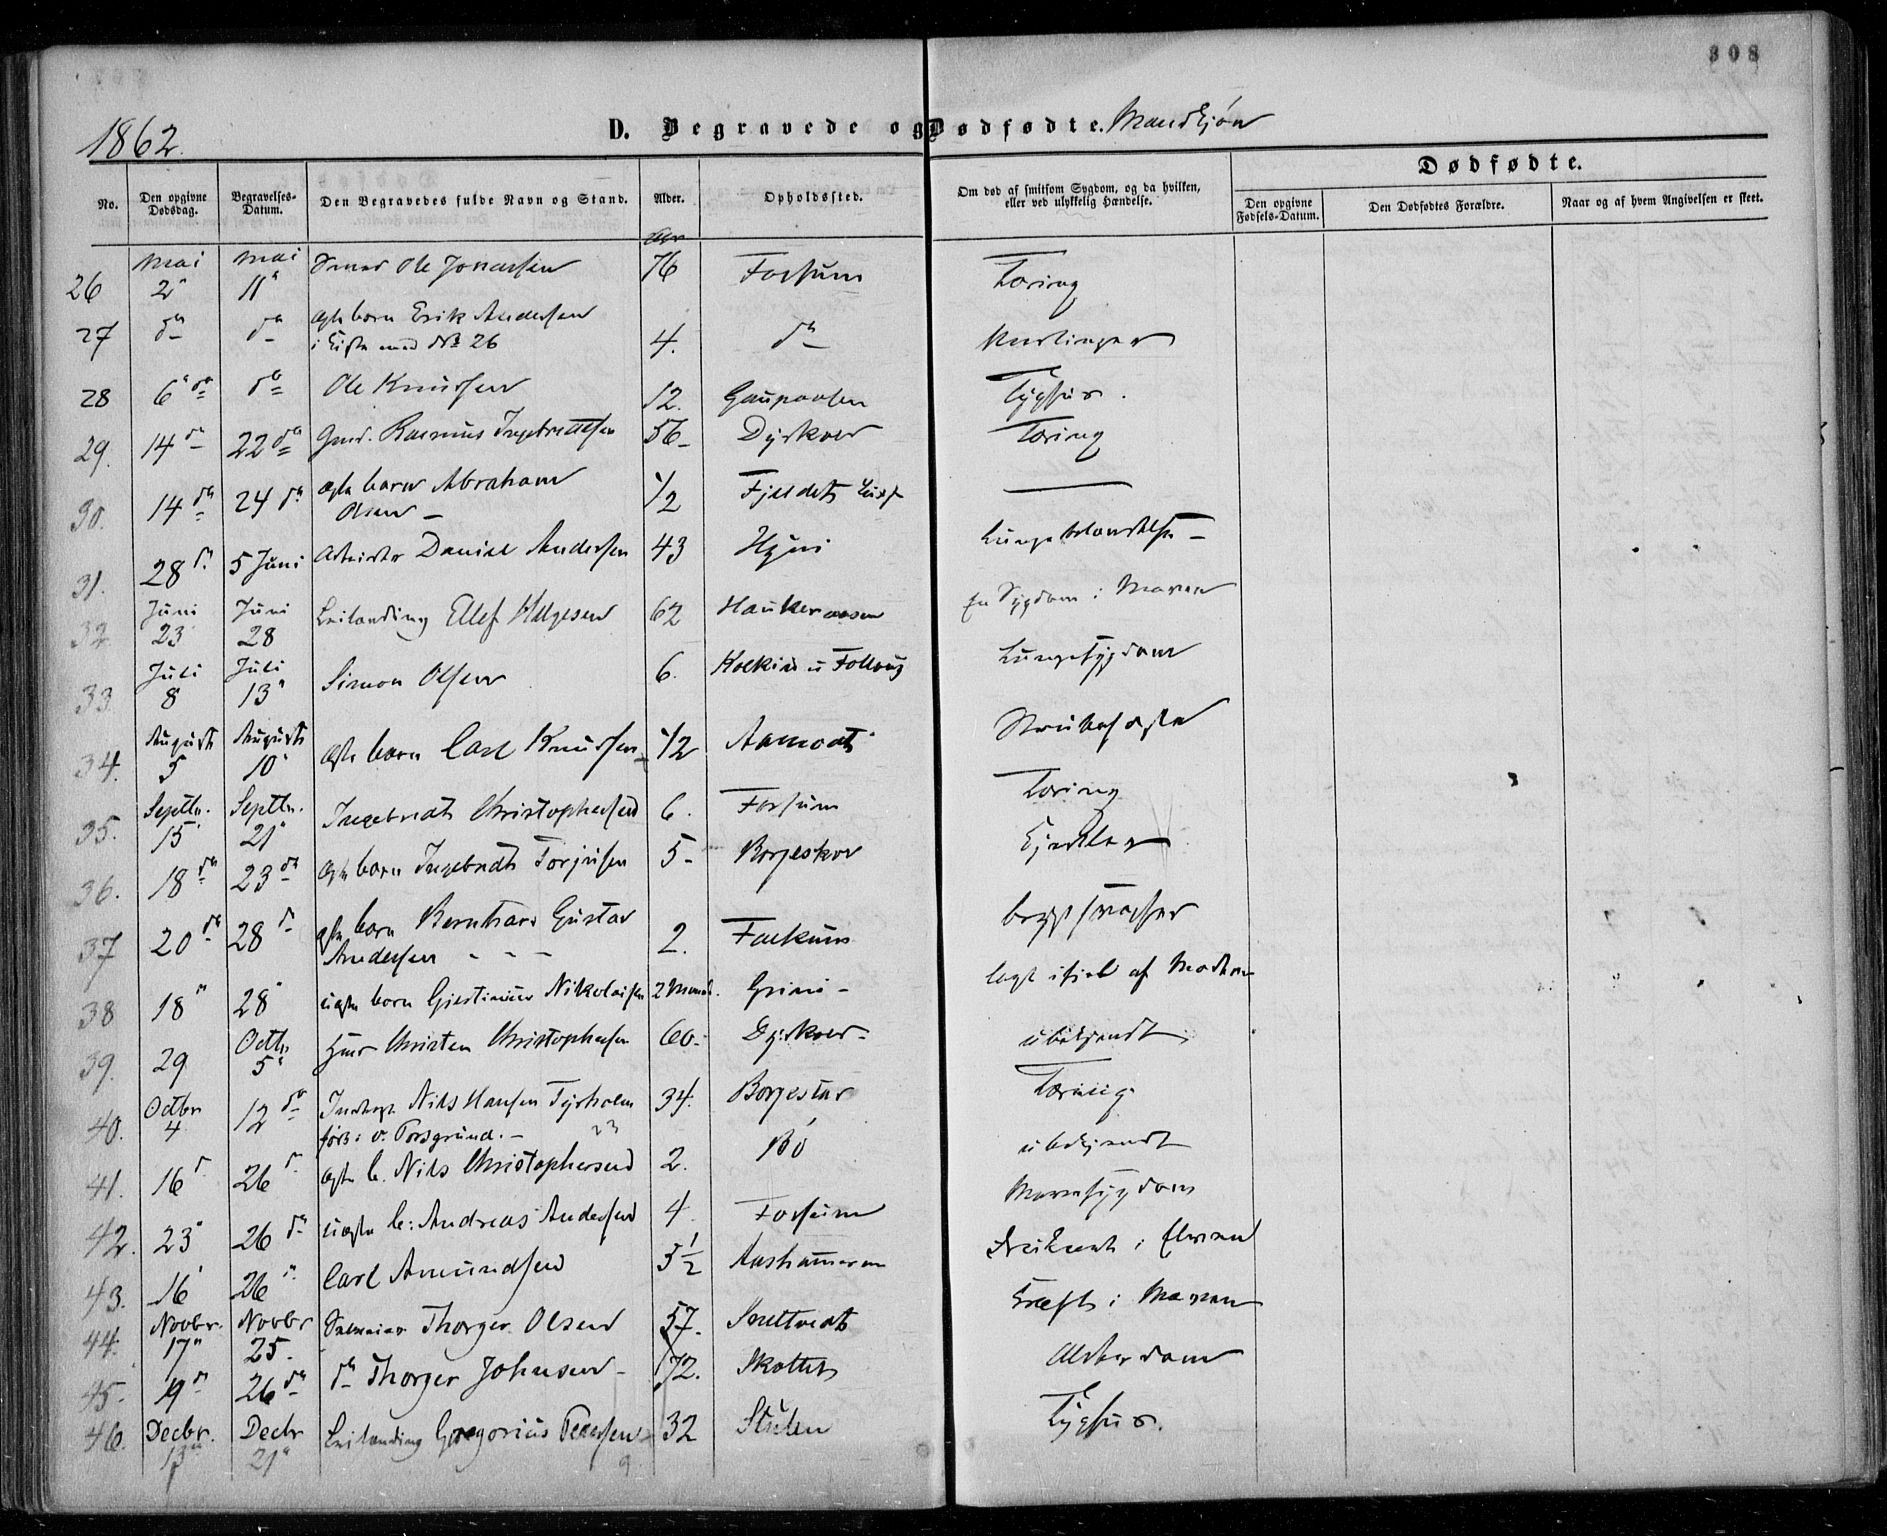 308
1862.
D. Begravede og Dødfødte. Mandkjøn
No.
Den opgivne Dødsdag.
Begravelses-Datum.
Den Begravedes fulde Navn og Stand.
Alder.
Opholdssted.
Om død af smitsom Sygdom, og da hvilken, eller ved ulykkelig Hændelse.
Dødfødte.
Den opgivne Fødsels-Datum.
Den Dødfødtes Forældre.
Naar og af hvem Angivelsen er skeet.
26 Mai 2 Mai 11 Ole Jonassen 76 Fossum Tæring
27 do do ægte barn Erik Andersen
i Kiste med No 26 4. do
28 6 do do Ole Knudsen 12. Gaupaasen Typhus.
29. 14 do 22 do Gmd. Rasmus Ingebretsen 56 Dyrkoll Tæring
30. 14 do 24 do ægte barn Abraham
Olsen - 1/2 Fjeldets —
31. 28 d. 5 Juni Arbeider Daniel Andersen 43 Hyni Lungebetændelse -
32 Juni 23 Juni 28 Leilænding Ellef Helgesen 62 Haukeraasen en Sygdom i Maven
33 Juli 8 Juli 13 Simon Olsen 6. Lungesygdom
34. August 5 August 10 ægte barn Carl Knudsen 1/2 Aamodt Strubehoste
35. Septbr. 15 Septbr. 21 Ingebredt Christophersen 6. Fossum Tæring
36. 18 do 23 do ægte barn Ingebredt Torjusen 5 -
37 20 do 28 d. ægte barn Bernhard Gustav
Andersen - - - 2. Falkum
38 18 28 uægte barn Nikolaisen 2 Maaned. Grini - lagt ihjel af Moderen
39. 29 Octbr 5 Christen Christophersen 60. Dyrkoll - ubekjendt
40. Octbr 4 12 do Niels Hansen Tyrholm
v. Porsgrund. - 34. Borgestad Tæring.
41. 16 d. 26 d. ægte b. Nils Christophersen 2. Bö ubekjendt
42. 23 26 do uægte b: Andreas Andersen 4. Fossum Mavesygdom
43. 16 26 Carl Amundsen 5 1/2 Aashammeren druknet i Elven
44. Novbr. 17 Novbr 25. Thorger Olsen 57. Sneltvedt Kræft i Maven
45. 19 d. 26 do do Thorger Johnsen - 72. Skottet Alderdom
46. Decbr. 13 Decbr 21 Leilænding Gregorius Pedersen 32 Stulen Typhus.